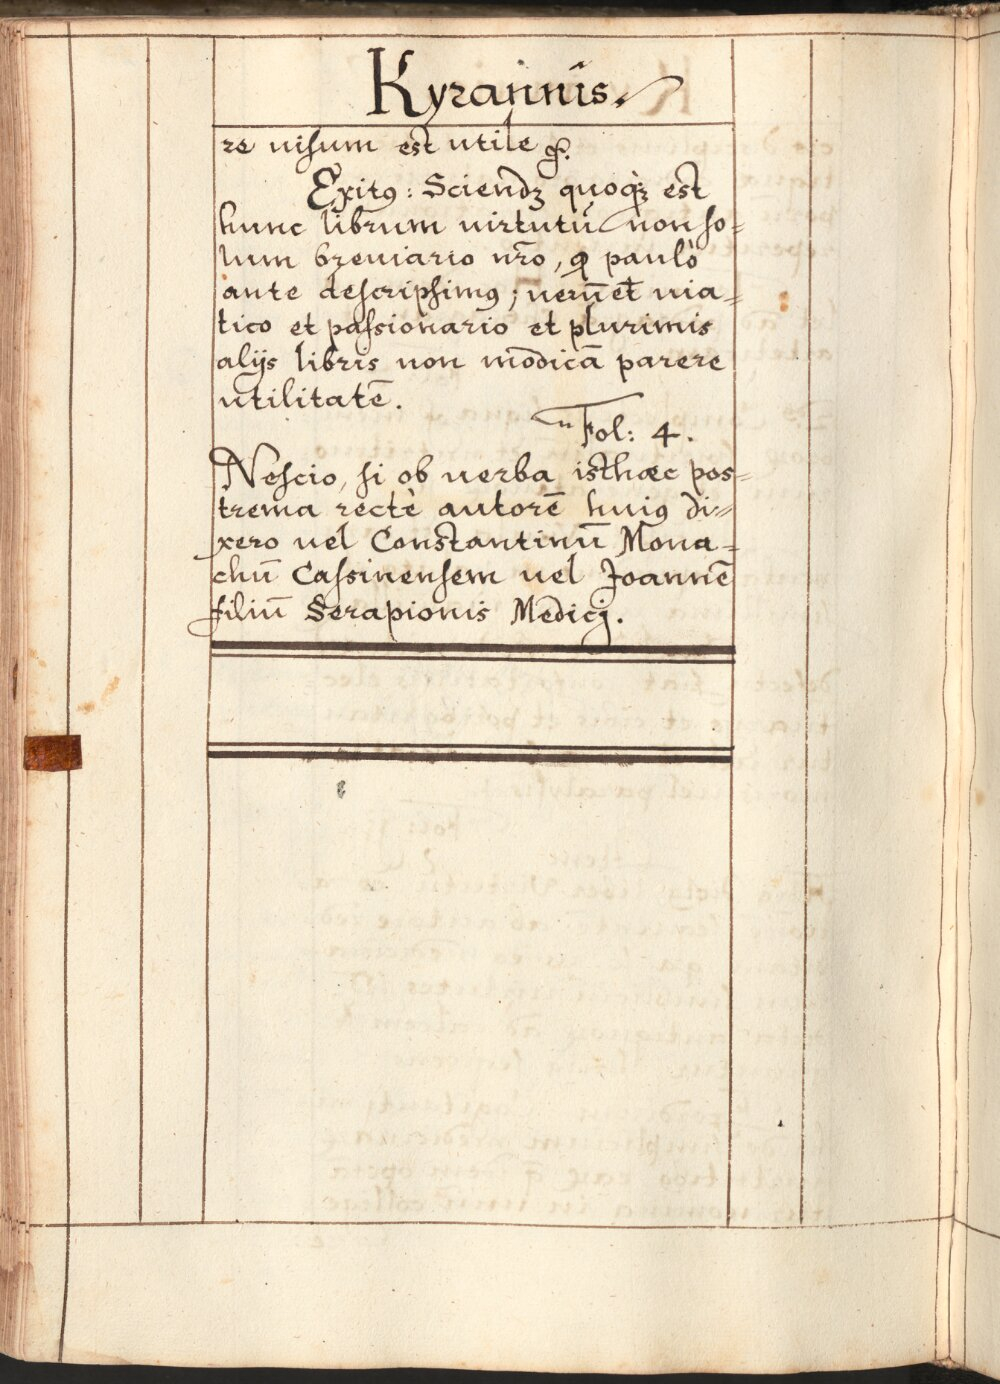 Kyrannis.
re uisum est utile &.
Exitꝯ: Sciendꝫ quoqꝫ est
hunc librum uirtutũ non so=
lum breuiario nr̃o, q̃ paulò
ante descripsimꝯ; uerũet uia=
tico et passionario et plurimis
alijs libris non modicã parere
utilitatẽ.
Fol: 4.
Nescio, si ob uerba isthæc pos=
trema rectè autorẽ huiꝯ di=
xero uel Constantinũ Mona=
chũ Cassinensem uel Joannẽ
filiũ Serapionis Medicj.